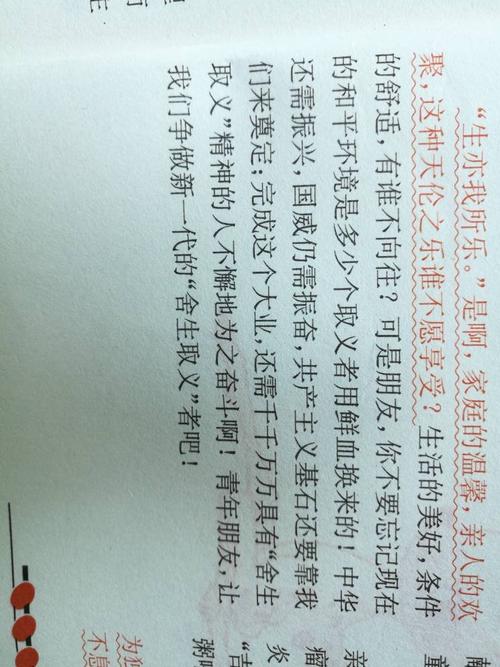 “生亦我所乐。”是啊，家庭的温馨，亲人的欢
聚，这种天伦之乐谁不愿享受？生活的美好，条件
的舒适，有谁不向往？可是朋友，你不要忘记现在
的和平环境是多少个取义者用鲜血换来的！中华
还需振兴，国威仍需振奋，共产主义基石还要靠我
们来奠定；完成这个大业，还需千千万万具有“舍生
取义”精神的人不懈地为之奋斗啊！青年朋友，让
我们争做新一代的“舍生取义”者吧！